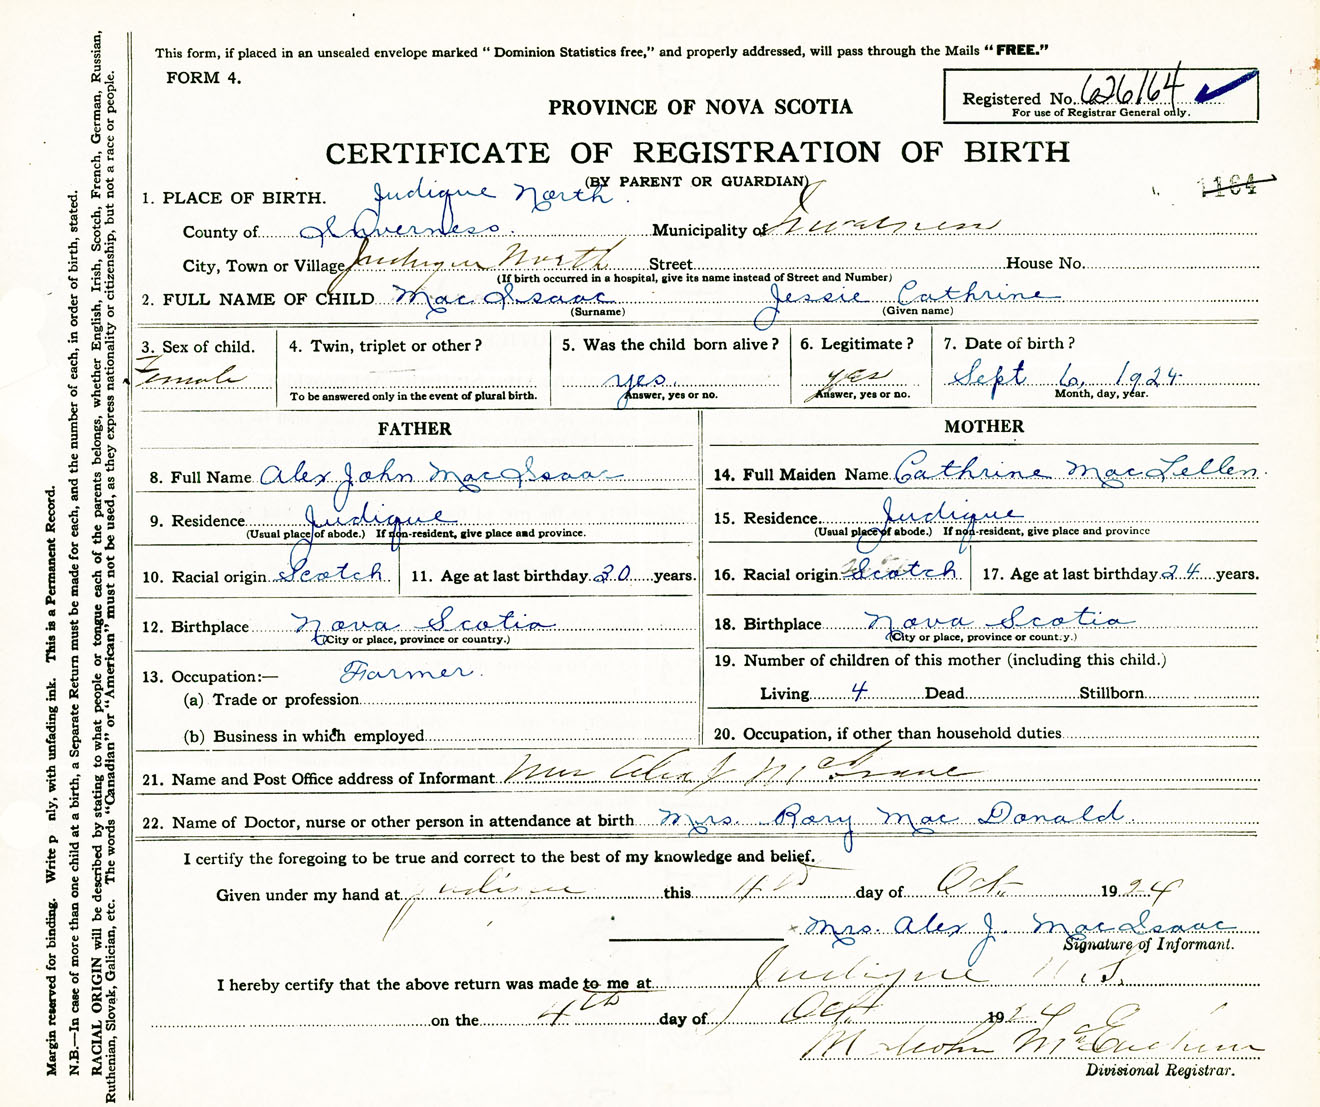 This form, if placed in an unsealed envelope marked "Dominion Statistics free," and properly addressed, will pass through the Mails "FREE."
FORM 4.
Registered No. 626164
For use of Registrar General only.
PROVINCE OF NOVA SCOTIA
CERTIFICATE OF REGISTRATION OF BIRTH
(BY PARENT OR GUARDIAN)
1164
1. PLACE OF BIRTH. Judique North.
County of Inverness. Municipality of Inverness
City, Town or Village Judique North Street House No.
(If birth occurred in a hospital, give its name instead of Street and Number)
2. FULL NAME OF CHILD Mac Isaac Jessie Cathrine
(Surname) (Given name)
3. Sex of child. 4. Twin, triplet or other? 5. Was the child born alive? 6. Legitimate? 7. Date of birth?
Female yes. yes Sept 6, 1924
To be answered only in the event of plural birth. Answer, yes or no. Answer, yes or no. Month, day, year.
FATHER MOTHER
8. Full Name Alex John MacIsaac 14. Full Maiden Name Cathrine MacLellen.
9. Residence Judique 15. Residence Judique
(Usual place of abode.) If non-resident, give place and province. (Usual place of abode.) If non-resident, give place and province
10. Racial origin Scotch 11. Age at last birthday 30 years. 16. Racial origin Scotch 17. Age at last birthday 24 years.
12. Birthplace Nova Scotia 18. Birthplace Nova Scotia
(City or place, province or country.) (City or place, province or country.)
13. Occupation:— Farmer. 19. Number of children of this mother (including this child.)
(a) Trade or profession Living 4 Dead Stillborn
(b) Business in which employed 20. Occupation, if other than household duties
21. Name and Post Office address of Informant Mrs Alex J McIsaac
22. Name of Doctor, nurse or other person in attendance at birth Mrs. Rory Mac Donald
I certify the foregoing to be true and correct to the best of my knowledge and belief.
Given under my hand at Judique this 4th day of Oct. 1924
x Mrs. Alex J. MacIsaac
Signature of Informant.
I hereby certify that the above return was made to me at Judique N.S.
on the 4th day of Oct. 1924
Malcolm McEachern
Divisional Registrar.
Margin reserved for binding. Write p nly, with unfading ink. This is a Permanent Record.
N.B.—In case of more than one child at a birth, a Separate Return must be made for each, and the number of each, in order of birth, stated.
RACIAL ORIGIN will be described by stating to what people or tongue each of the parents belongs, whether English, Irish, Scotch, French, German, Russian,
Ruthenian, Slovak, Galician, etc. The words "Canadian" or "American" must not be used, as they express nationality or citizenship, but not a race or people.